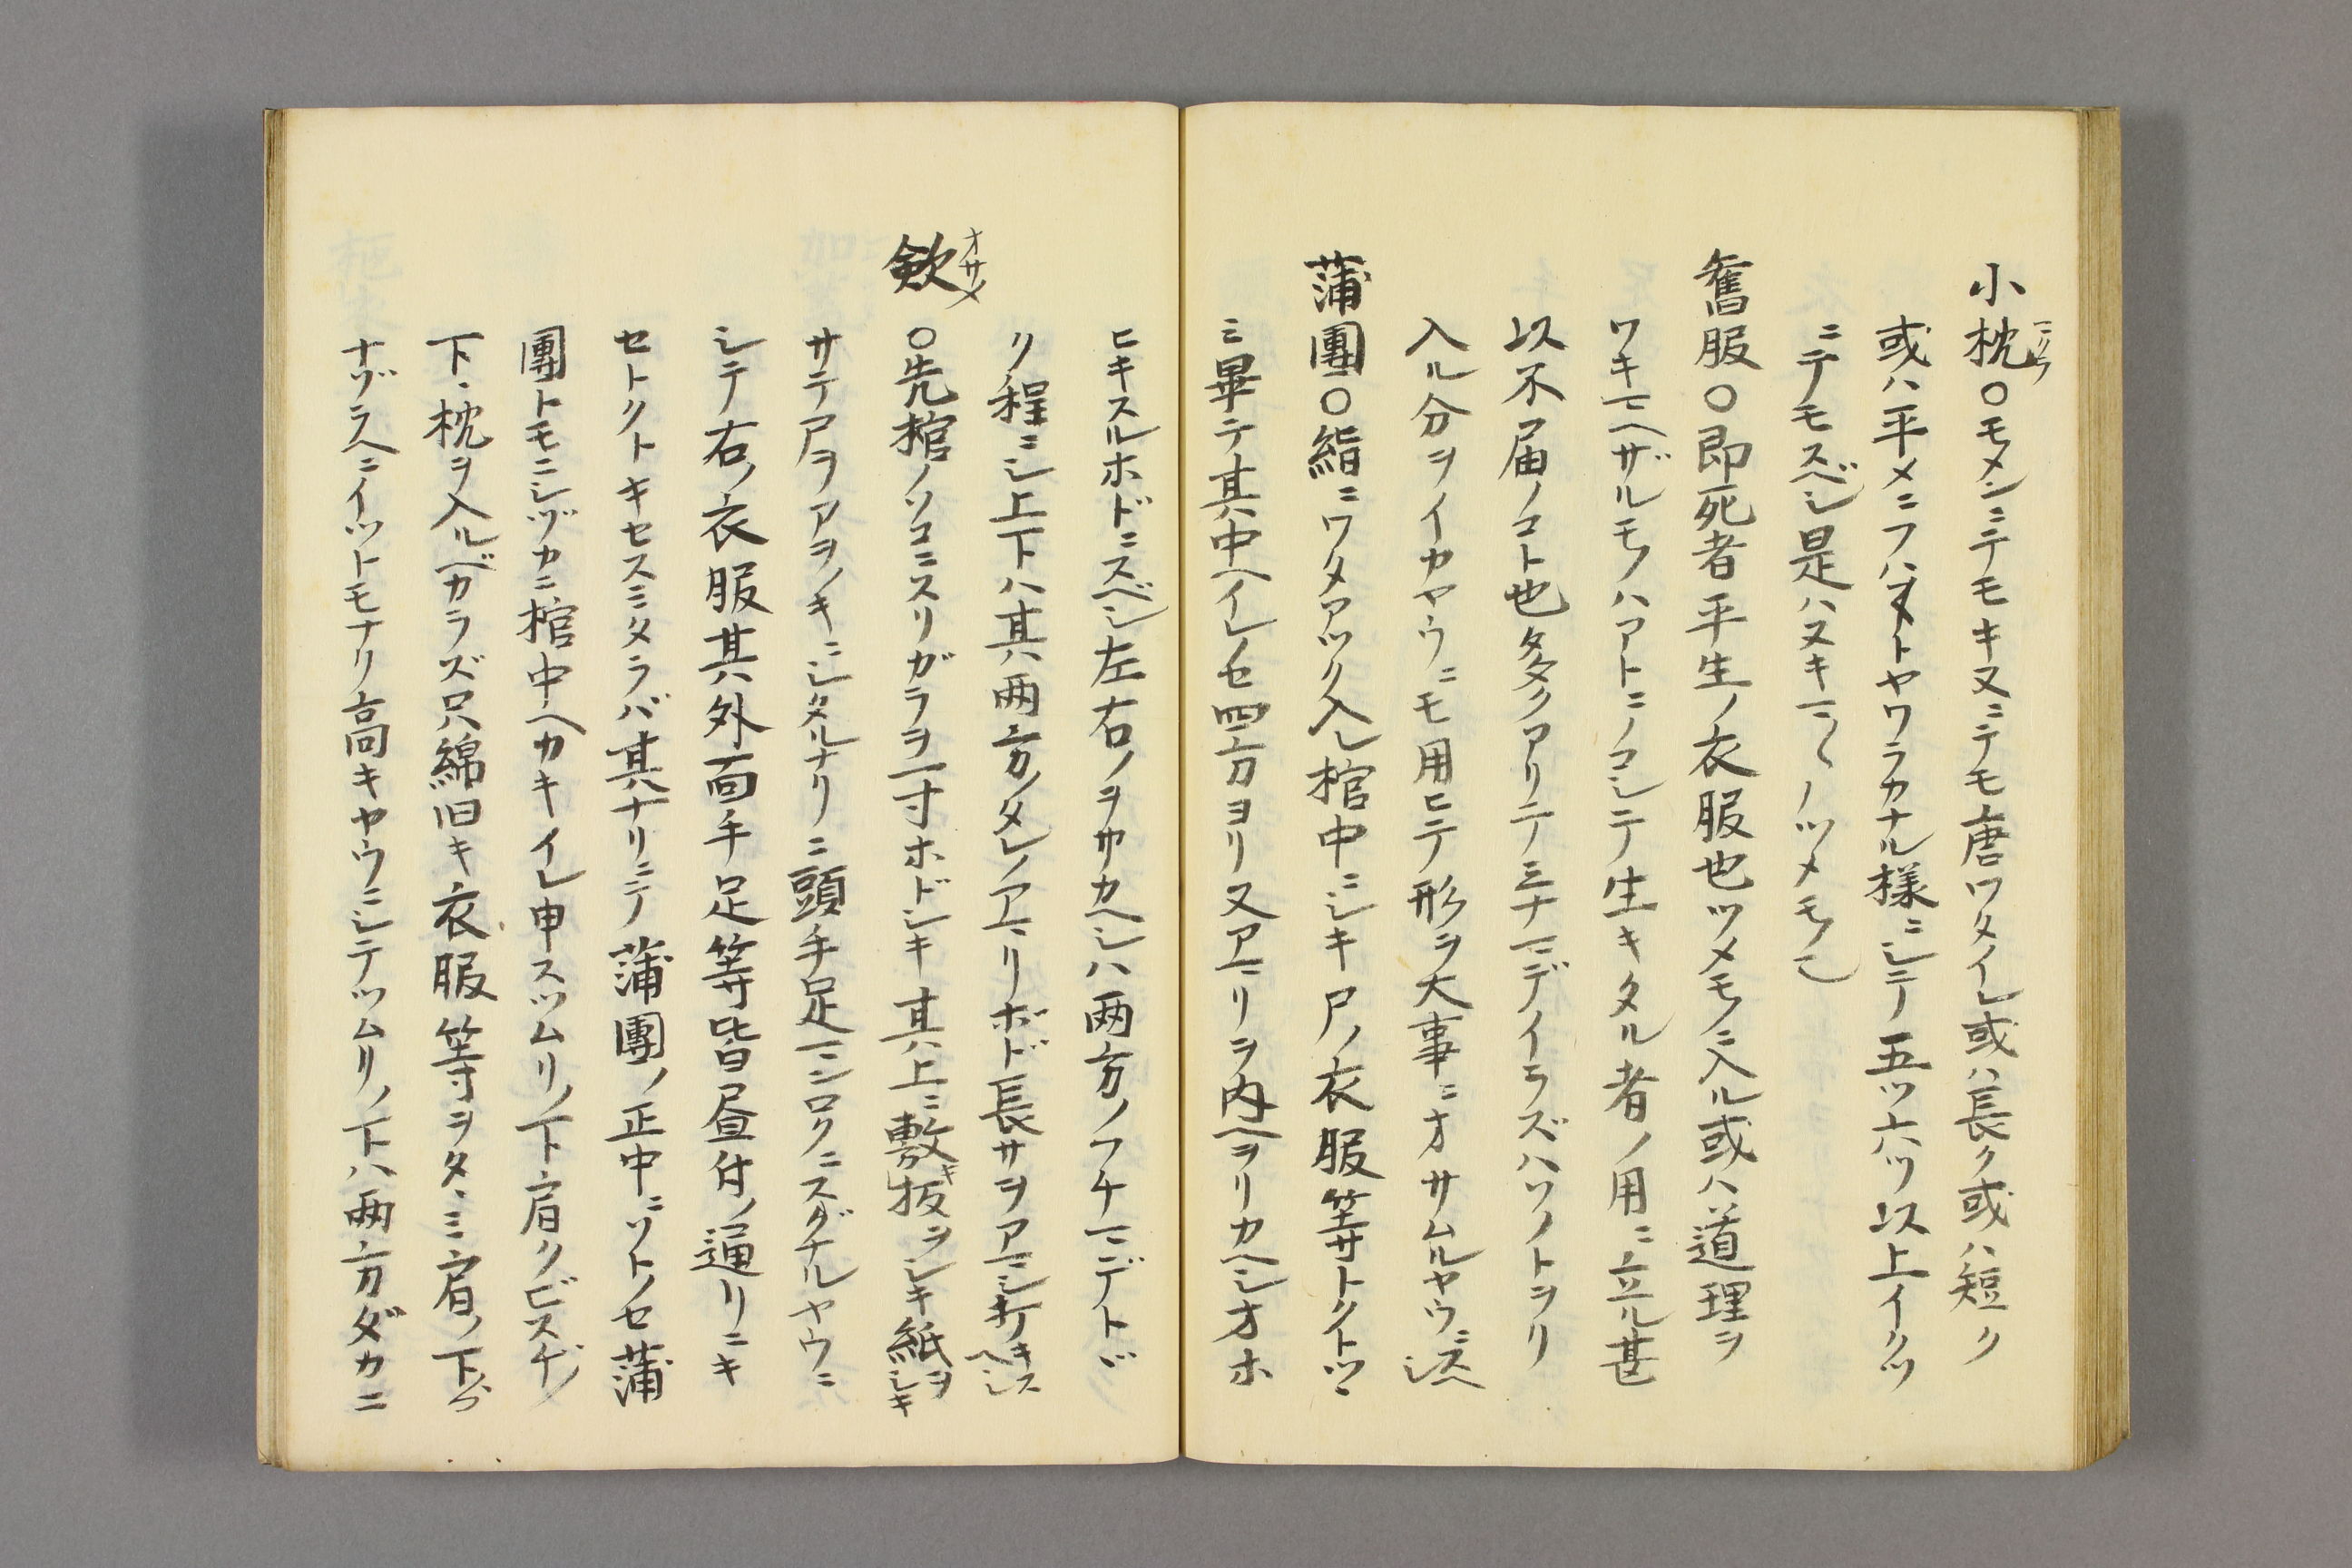 小枕○モメンニテモキヌニテモ唐ワタイレ或ハ長ク或ハ短ク
或ハ平メニフハ〳〵トヤワラカナル様ニシテ五ツ六ツ以上イクツ
ニテモスベシ是ハスキマ〳〵ノツメモノ也
舊服○即死者平生ノ衣服也ツメモノニ入ル或ハ道理ヲ
ワキマヘザルモノハアトニノコシテ生キタル者ノ用ニ立ル甚
以不届ノコト也多クアリテミナマデイラズハソノトヲリ
入ル分ヲイカヤウニモ用ヒテ形ヲ大事ニオサムルヤウニスベシ
蒲團○絹ニワタアツク入レ棺中ニシキ尸ノ衣服等トクトツヽ
ミ畢テ其中ヘイレノセ四方ヨリ又アマリヲ内ヘヲリカヘシオホ
ヒキスルホドニスベシ左右ノヲサカヘシハ両方ノフチマデトヾ
ク程ニシ上下ハ其両方ノタレノアマリホド長サヲアマシ打キスヘシ
歛 オサメ
○先棺ノソコニスリガラヲ一寸ホドシキ其上ニ敷キ板ヲシキ紙ヲシキ
サテ尸ヲアヲノキニシタルナリニ頭手足マンロクニスグナルヤウニ
シテ右ノ衣服其外面手足等皆畳付ノ通リニキ
セトクトキセスミタラバ其ナリニテ蒲團ノ正中ニソトノセ蒲
團トモニシヅカニ棺中ヘカキイレ申スツムリノ下肩クビスヂノ
下ヽ枕ヲ入ルベカラズ只綿旧キ衣服等ヲタヽミ肩ノ下ヅ
ナゾラヘニイツトモナリ高キヤウニシテツムリノ下ハ両方ダカニ